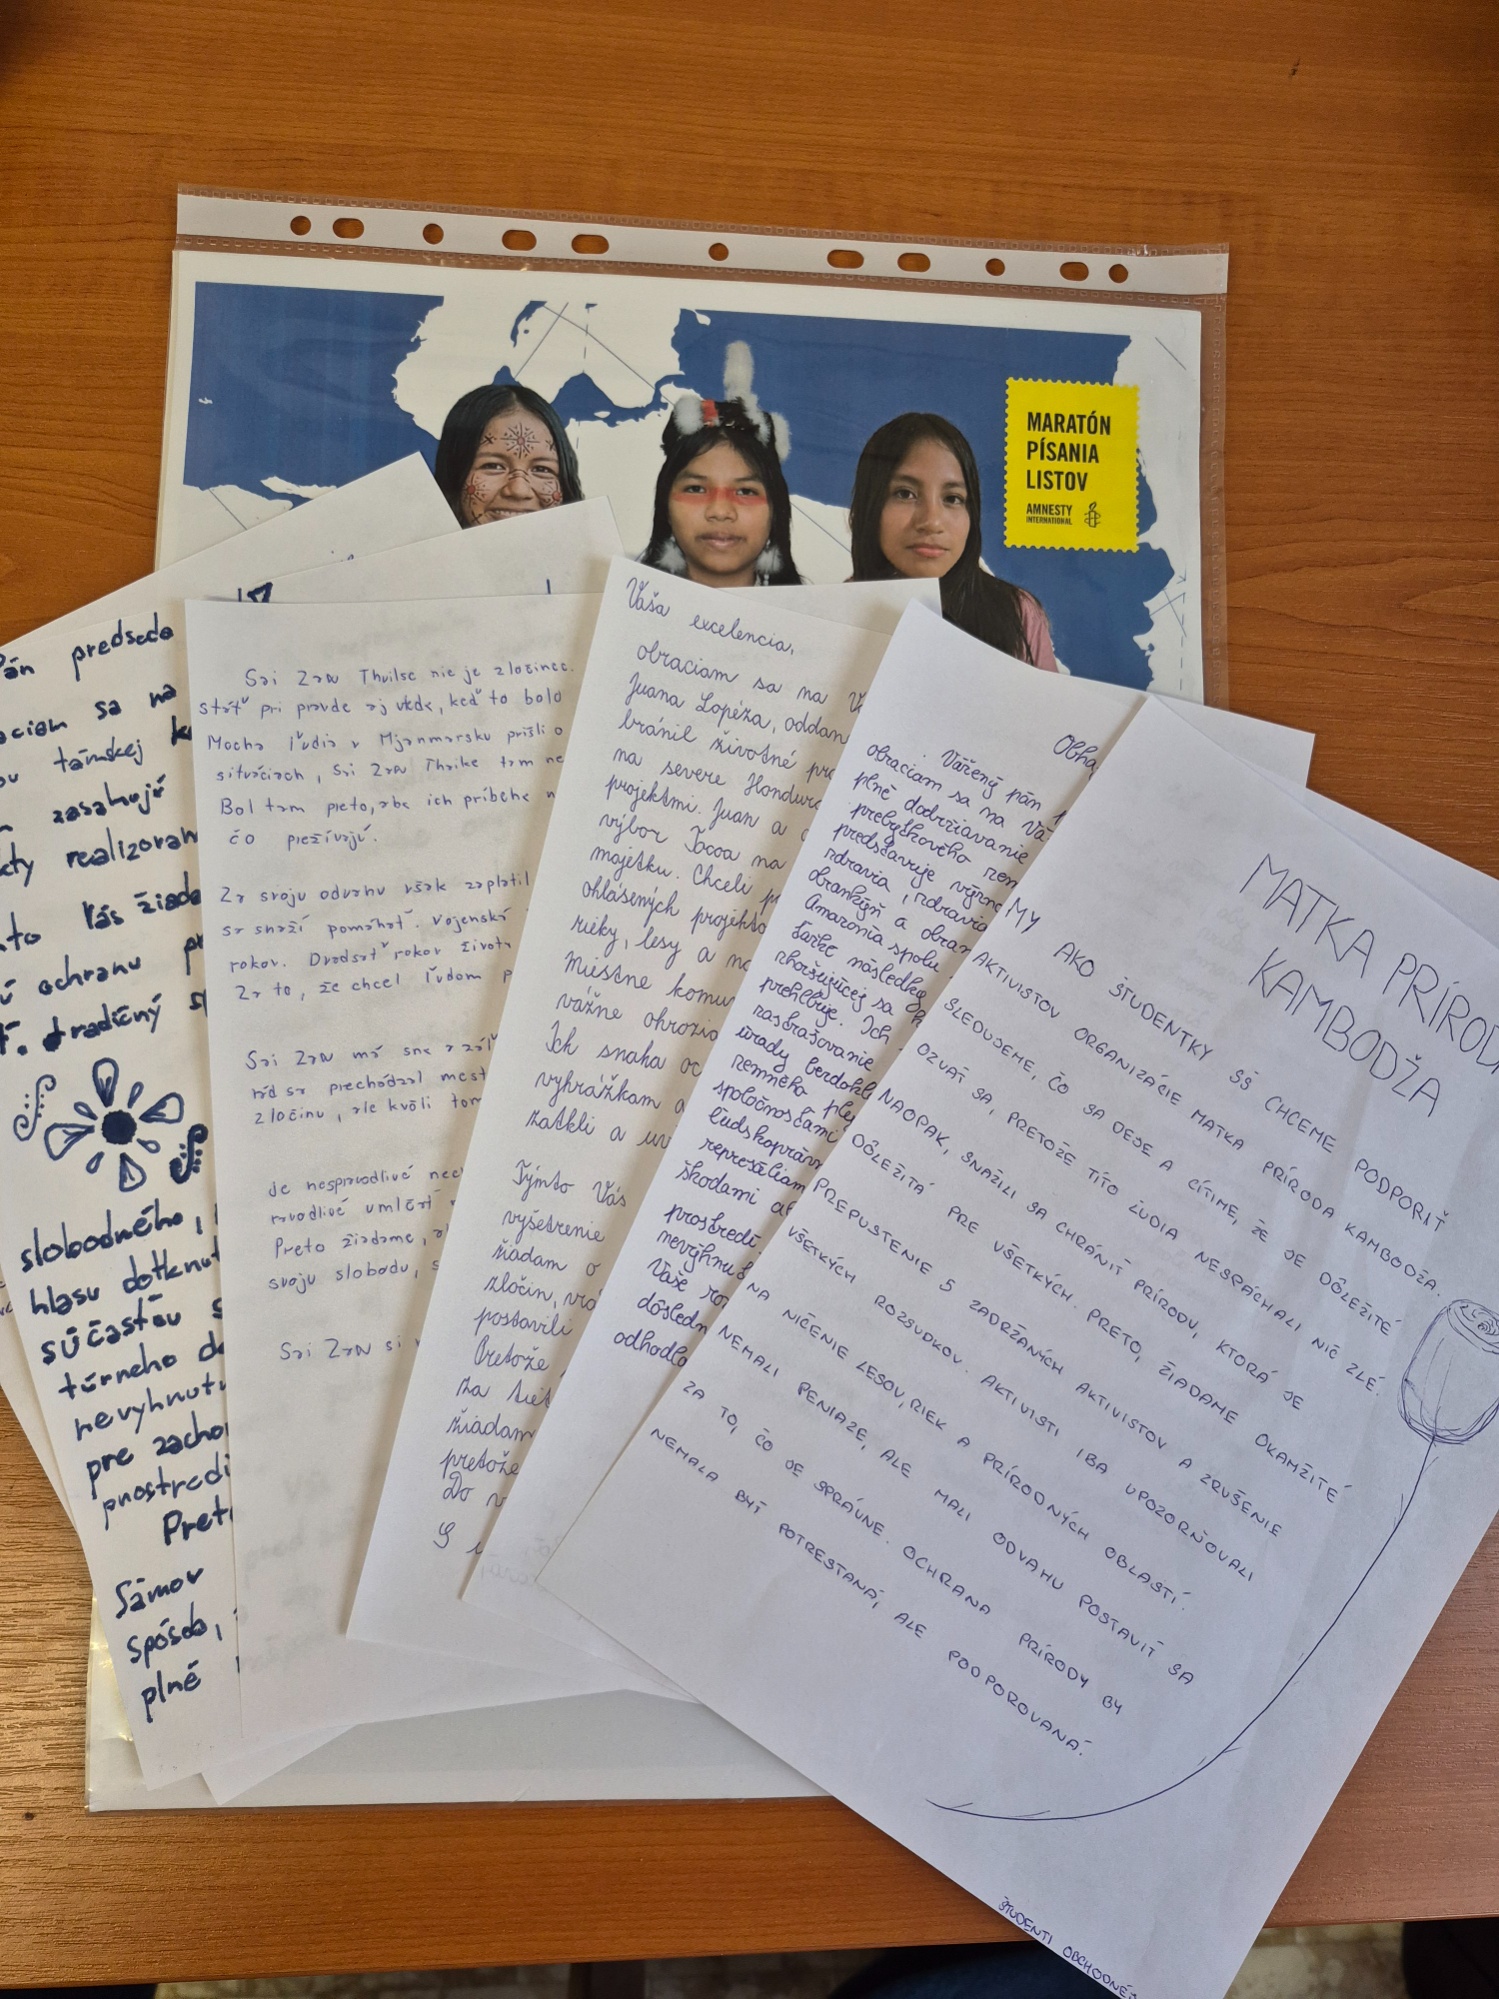 MARATÓN
PÍSANIA
LISTOV
AMNESTY
INTERNATIONAL
predseda
sa na
tamskej
zasahujú
realizovan
Vás žiada
ochranu
tradičný
slobodného,
hlasu dotknut
súčasťou s
túrneho de
nevyhnutn
pre zachov
prostredi
Preto
Sámov
spôsob,
plné
Sai Zaw Thaike nie je zločinec.
stáť pri pravde aj vtedy, keď to bolo
Mocha ľudia v Mjanmarsku prišli o
situáciach, Sai Zaw Thaike tam ne
Bol tam preto, aby ich príbehe n
čo prežívajú.
Za svoju odvahu však zaplatil
sa snaží pomáhať. Vojenská
rokov. Dvadsať rokov života
Za to, že chcel ľuďom p
Sai Zaw má sna a záľ
rád sa prechádzal mest
zločinu, ale kvôli tom
Je nespravodlivé nec
umlčať
Preto žiadame, a
svoju slobodu, s
Sai Zaw si
Vaša excelencia,
obraciam sa na V
Juana Lopéza, oddan
bránil životné pro
na severe Hondura
projektmi. Juan a
výbor Tocoa na
majetku. Chceli p
ohlásených projekto
rieky, lesy a na
Miestne komu
vážne ohrozia
Ich snaha oc
vyhrážkam a
zatkli a uv
Týmto Vás
vyšetrenie
žiadam o
zločin, vrá
postavili
Pretože
za tiet
žiadam
pretože
Do v
S ú
Obha
Vážený pán
obraciam sa na Vá
plné dodržiavanie
prebytkového zem
predstavuje význa
zdravia, zdravia
obrankýň a obran
Amazonia spolu
ťažké následky
zhoršujúcej sa
prehlbuje. Ich
zastrašovanie
úrady bezdohľ
zemného ply
spoločnosťami
ľudskoprávn
represáliam
škodami a
prostredí.
nevyhnut
Vaše roz
dôsledn
odhodla
MATKA PRÍROD
KAMBODŽA
MY AKO ŠTUDENTKY SŠ CHCEME PODPORIŤ
AKTIVISTOV ORGANIZÁCIE MATKA PRÍRODA KAMBODŽA.
SLEDUJEME, ČO SA DEJE A CÍTIME, ŽE JE DÔLEŽITÉ
OZVAŤ SA, PRETOŽE TÍTO ĽUDIA NESPÁCHALI NIČ ZLÉ.
NAOPAK, SNAŽILI SA CHRÁNIŤ PRÍRODU, KTORÁ JE
DÔLEŽITÁ PRE VŠETKÝCH. PRETO, ŽIADAME OKAMŽITÉ
PREPUSTENIE 5 ZADRŽANÝCH AKTIVISTOV A ZRUŠENIE
VŠETKÝCH ROZSUDKOV. AKTIVISTI IBA UPOZORŇOVALI
NA NIČENIE LESOV, RIEK A PRÍRODNÝCH OBLASTÍ.
NEMALI PENIAZE, ALE MALI ODVAHU POSTAVIŤ SA
ZA TO, ČO JE SPRÁVNE. OCHRANA PRÍRODY BY
NEMALA BYŤ POTRESTANÁ, ALE PODPOROVANÁ.
ŠTUDENTI OBCHODNEJ